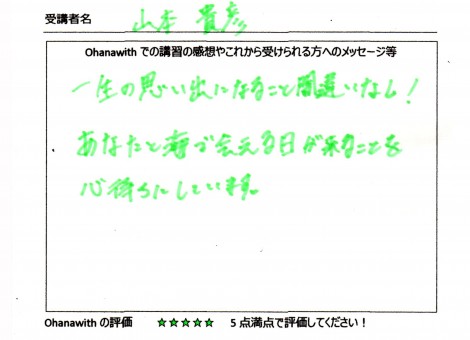 受講者名 山本 貴彦
Ohanawith での講習の感想やこれから受けられる方へのメッセージ等
一生の思い出になること間違いなし!
あなたと海で会える日が来ることを
心待ちにしています。
Ohanawith の評価 ★★★★★ 5 点満点で評価してください!